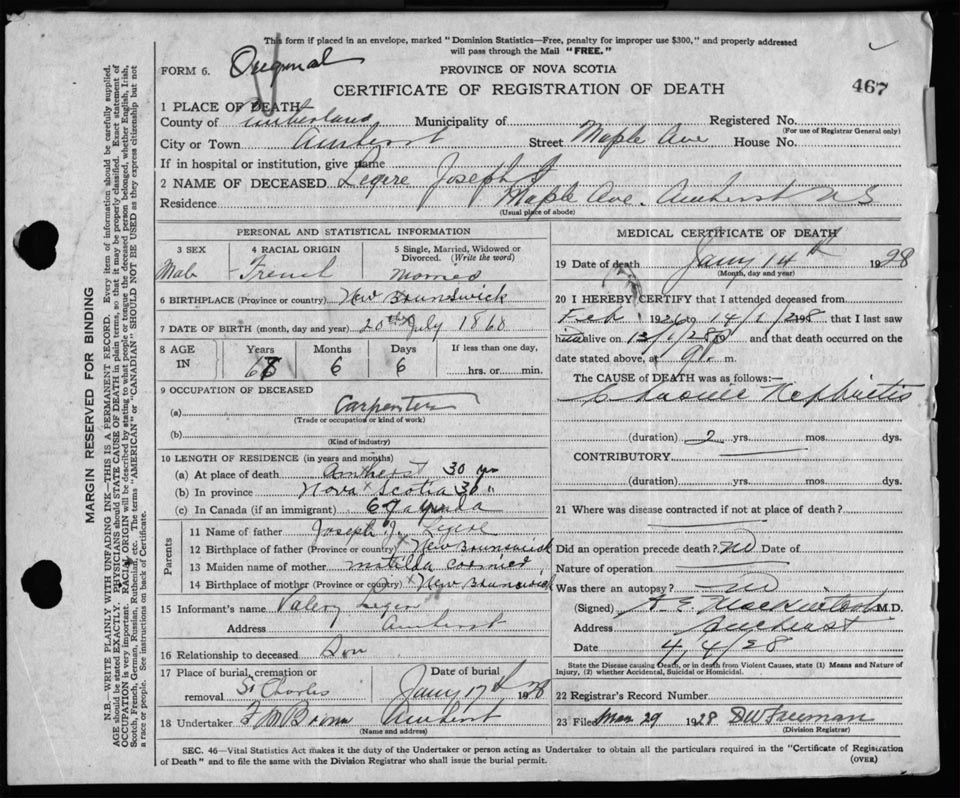 This form if placed in an envelope, marked "Dominion Statistics—Free, penalty for improper use $300," and properly addressed
will pass through the Mail "FREE."
FORM 6. Original
PROVINCE OF NOVA SCOTIA
467
CERTIFICATE OF REGISTRATION OF DEATH
1 PLACE OF DEATH
County of Cumberland Municipality of Registered No.
(For use of Registrar General only)
City or Town Amherst Street Maple Ave House No.
If in hospital or institution, give name
2 NAME OF DECEASED Legere Joseph
Residence Maple Ave. Amherst NS
(Usual place of abode)
PERSONAL AND STATISTICAL INFORMATION
3 SEX 4 RACIAL ORIGIN 5 Single, Married, Widowed or Divorced. (Write the word)
Male French Married
6 BIRTHPLACE (Province or country) New Brunswick
7 DATE OF BIRTH (month, day and year) 20th July 1860
8 AGE IN Years Months Days If less than one day,
6 6 hrs. or min.
9 OCCUPATION OF DECEASED
(a) Carpenter
(Trade or occupation or kind of work)
(b)
(Kind of industry)
10 LENGTH OF RESIDENCE (in years and months)
(a) At place of death Amherst 30 yrs
(b) In province Nova Scotia 30 "
(c) In Canada (if an immigrant)
Parents
11 Name of father Joseph J. Legere
12 Birthplace of father (Province or country) New Brunswick
13 Maiden name of mother Matilda Cormier
14 Birthplace of mother (Province or country) New Brunswick
15 Informant's name Valery Leger
Address Amherst
16 Relationship to deceased Son
17 Place of burial, cremation or removal St Charles Date of burial Jany 17th 1928
18 Undertaker Amherst
(Name and address)
MEDICAL CERTIFICATE OF DEATH
19 Date of death Jany 14th 1928
(Month, day and year)
20 I HEREBY CERTIFY that I attended deceased from
Feb 1926 to 14/1/28 that I last saw
him alive on 13/1/28 and that death occurred on the
date stated above, at 9 . m.
The CAUSE of DEATH was as follows:—
Chronic Nephritis
(duration) 2 yrs. mos. dys.
CONTRIBUTORY
(duration) yrs. mos. dys.
21 Where was disease contracted if not at place of death?
Did an operation precede death? no Date of
Nature of operation
Was there an autopsy? no
(Signed) M.D.
Address Amherst
Date 4/4/28
State the Disease causing Death, or in death from Violent Causes, state (1) Means and Nature of
Injury, (2) whether Accidental, Suicidal or Homicidal.
22 Registrar's Record Number
23 Filed Mar 29 1928 DW Freeman
(Division Registrar)
SEC. 46—Vital Statistics Act makes it the duty of the Undertaker or person acting as Undertaker to obtain all the particulars required in the "Certificate of Registration
of Death" and to file the same with the Division Registrar who shall issue the burial permit.
(OVER)
MARGIN RESERVED FOR BINDING
N.B.—WRITE PLAINLY WITH UNFADING INK—THIS IS A PERMANENT RECORD. Every item of information should be carefully supplied.
AGE should be stated EXACTLY. PHYSICIANS should STATE CAUSE OF DEATH in plain terms, so that it may be properly classified. Exact statement of
OCCUPATION is very important. RACIAL ORIGIN will be described by stating to what people or tongue the deceased person belonged, whether English, Irish,
Scotch, French, German, Russian, Ruthenian, etc. The terms "AMERICAN" or "CANADIAN" SHOULD NOT BE USED as they express citizenship but not
a race or people. See instructions on back of Certificate.